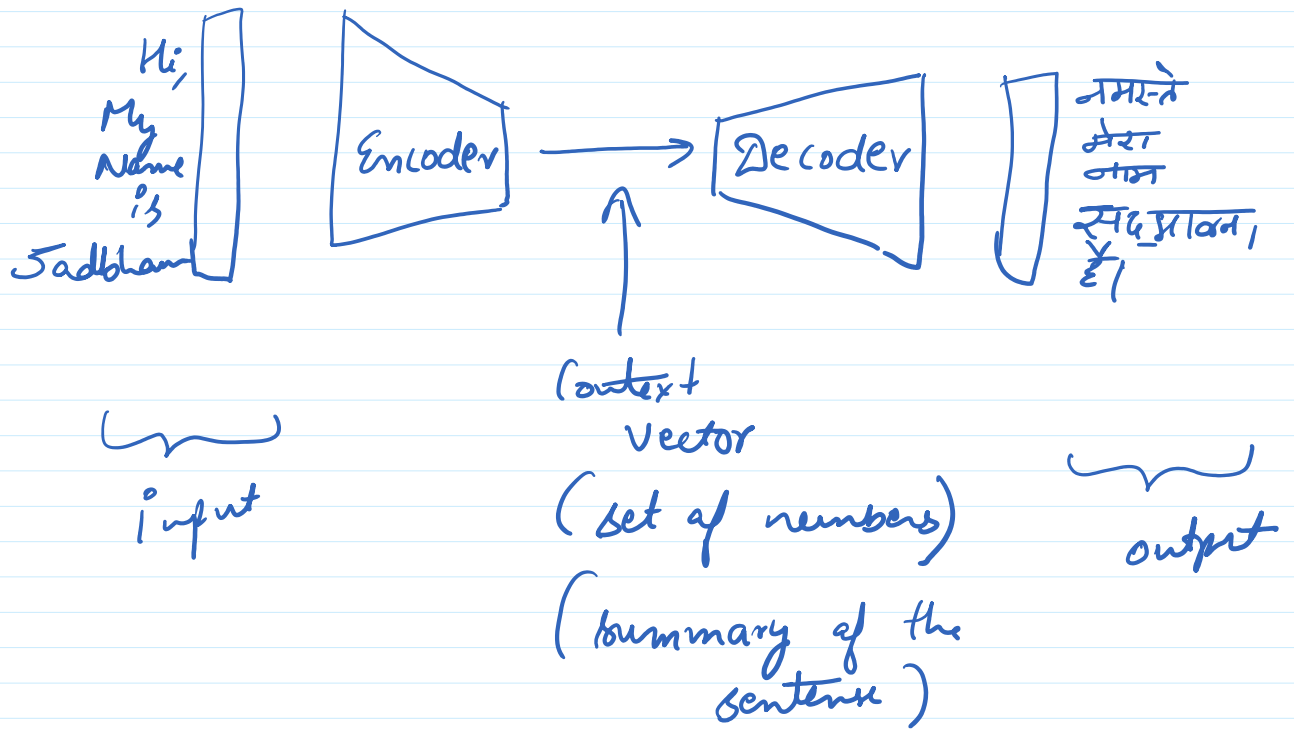 Hi,
My
Name
is
Sadbhav
Encoder
Decoder
नमस्ते
मेरा
नाम
है।
Context
vector
(set of numbers)
(summary of the
sentense)
input
output